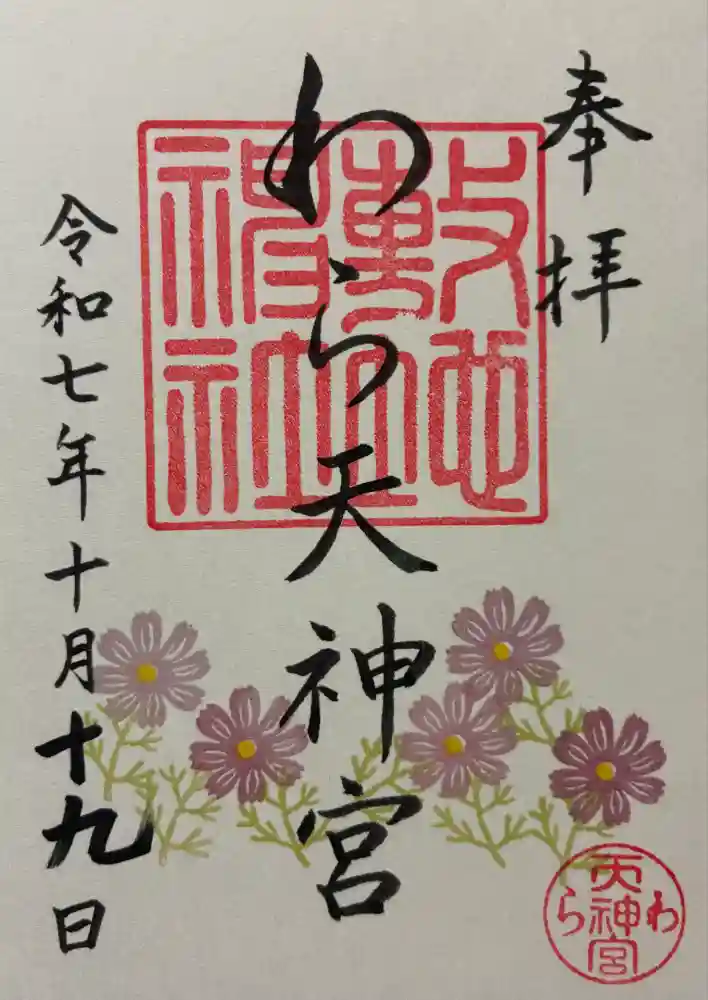 奉拝
わら天神宮
敷地神社
令和七年十月十九日
わら天神宮